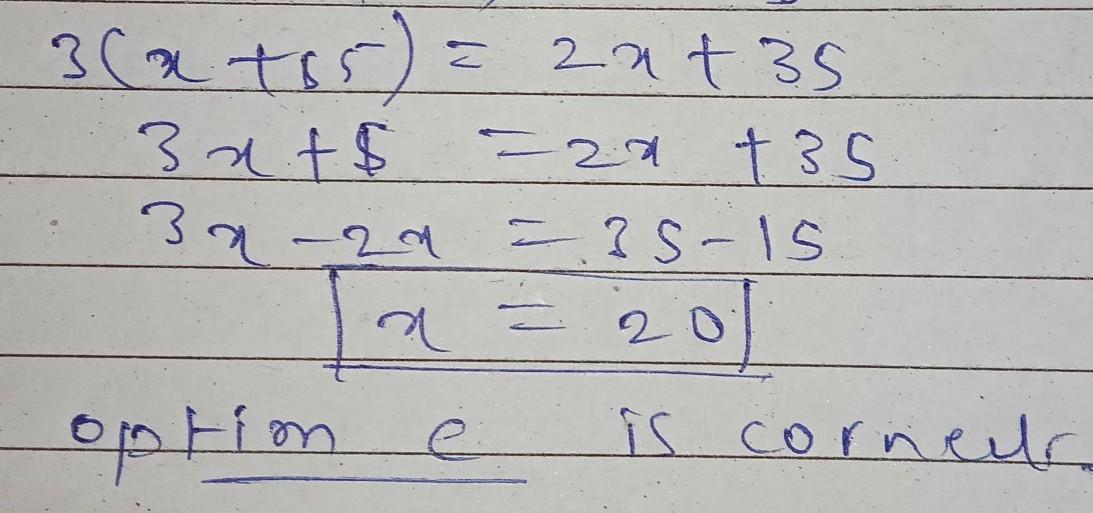 3(x + 5) = 2x + 35
3x + 5 = 2x + 35
3x - 2x = 35 - 15
x = 20
option c is corneur.